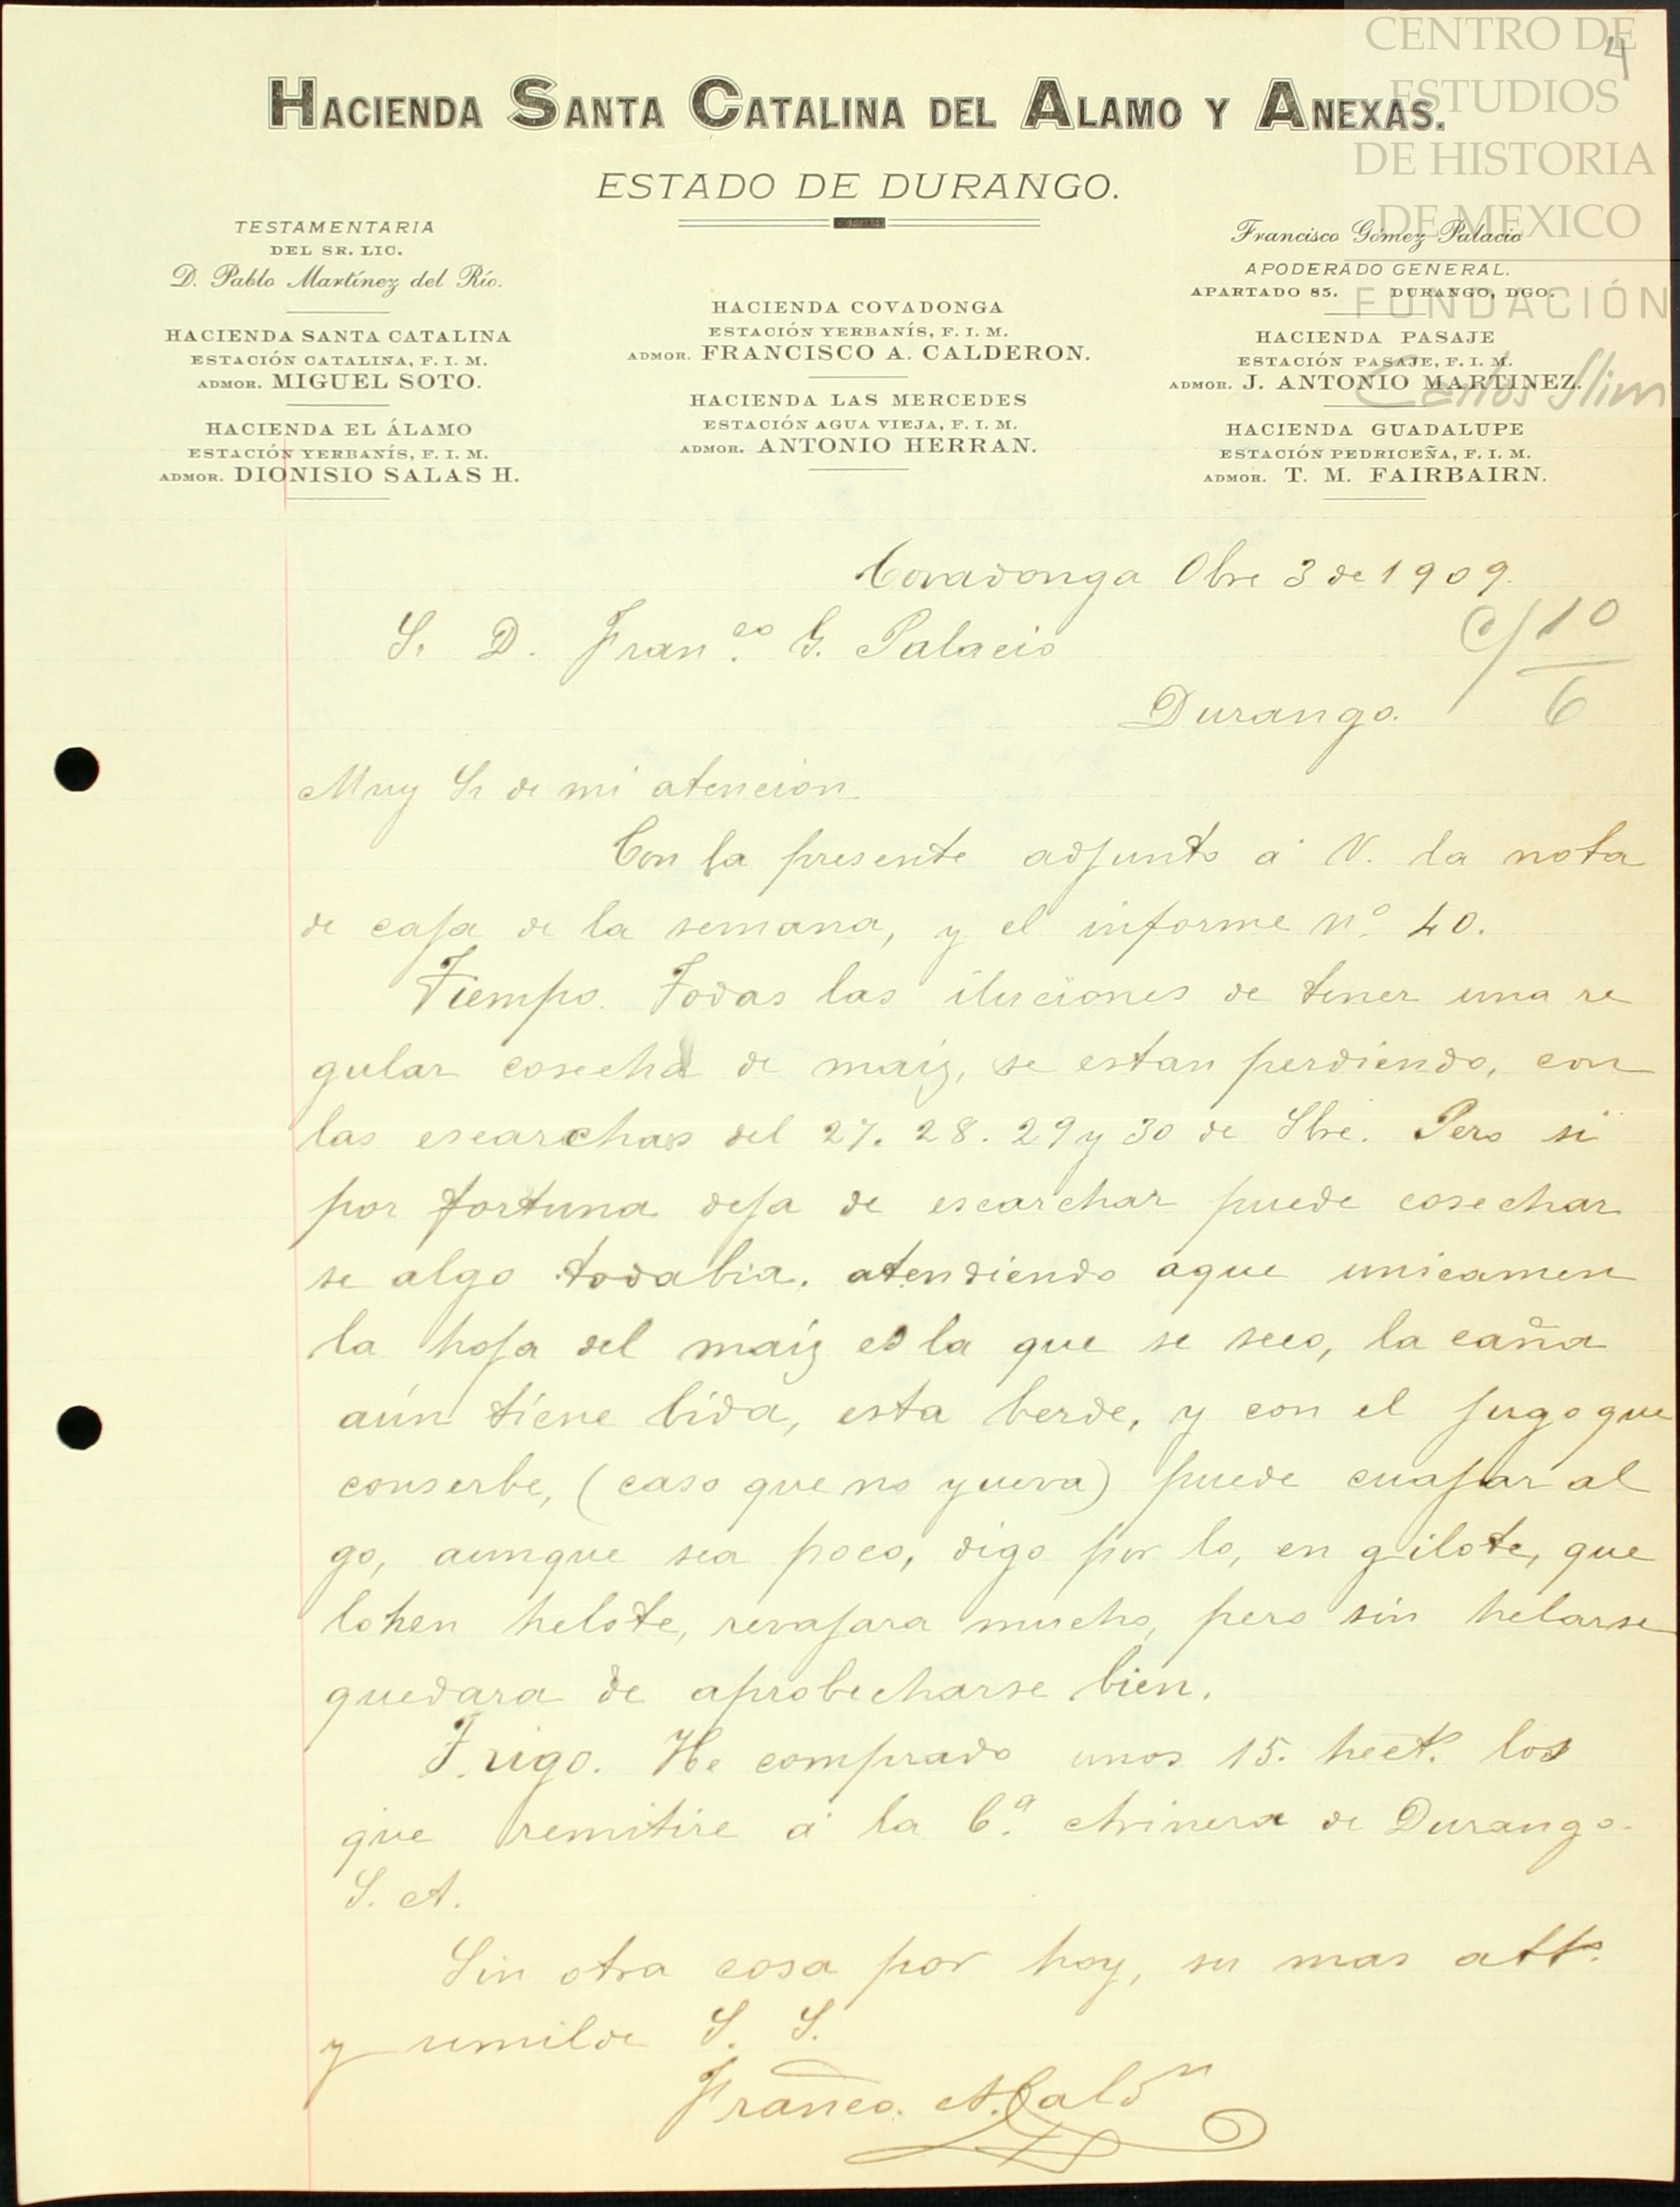 CENTRO DE
ESTUDIOS
DE HISTORIA
DE MEXICO
FUNDACIÓN
Carlos Slim
4
HACIENDA SANTA CATALINA DEL ALAMO Y ANEXAS.
ESTADO DE DURANGO.
TESTAMENTARIA
DEL SR. LIC.
D. Pablo Martínez del Río.
HACIENDA SANTA CATALINA
ESTACIÓN CATALINA, F. I. M.
ADMOR. MIGUEL SOTO.
HACIENDA EL ÁLAMO
ESTACIÓN YERBANÍS, F. I. M.
ADMOR. DIONISIO SALAS H.
HACIENDA COVADONGA
ESTACIÓN YERBANÍS, F. I. M.
ADMOR. FRANCISCO A. CALDERON.
HACIENDA LAS MERCEDES
ESTACIÓN AGUA VIEJA, F. I. M.
ADMOR. ANTONIO HERRAN.
Francisco Gómez Palacio
APODERADO GENERAL.
APARTADO 85. DURANGO, DGO.
HACIENDA PASAJE
ESTACIÓN PASAJE, F. I. M.
ADMOR. J. ANTONIO MARTINEZ.
HACIENDA GUADALUPE
ESTACIÓN PEDRICEÑA, F. I. M.
ADMOR. T. M. FAIRBAIRN.
Covadonga Obre 3 de 1909.
S. D. Fran.co G. Palacio
c/ 10
6
Durango.
Muy Sr de mi atencion
Con la presente adjunto a V. la nota
de caja de la semana, y el informe nº 40.
Tiempo. Todas las iluciones de tener una re
gular cosecha de maiz, se estan perdiendo, con
las escarchas del 27. 28. 29 y 30 de Sbre. Pero si
por fortuna deja de escarchar puede cosechar
se algo todabia. atendiendo aque unicamen
la hoja del maiz es la que se seco, la caña
aún tiene bida, esta berde, y con el jugo que
conserbe, (caso que no yueva) puede cuajar al
go, aunque sea poco, digo por lo, en gilote, que
lo hen helote, revajara mucho, pero sin helarse
quedara de aprobecharse bien.
Trigo. He comprado unos 15. hect.s los
que remitire á la Cª. chinera de Durango.
S. A.
Sin otra cosa por hoy, su mas att.
y umilde S. S.
Franco. A. Caldn